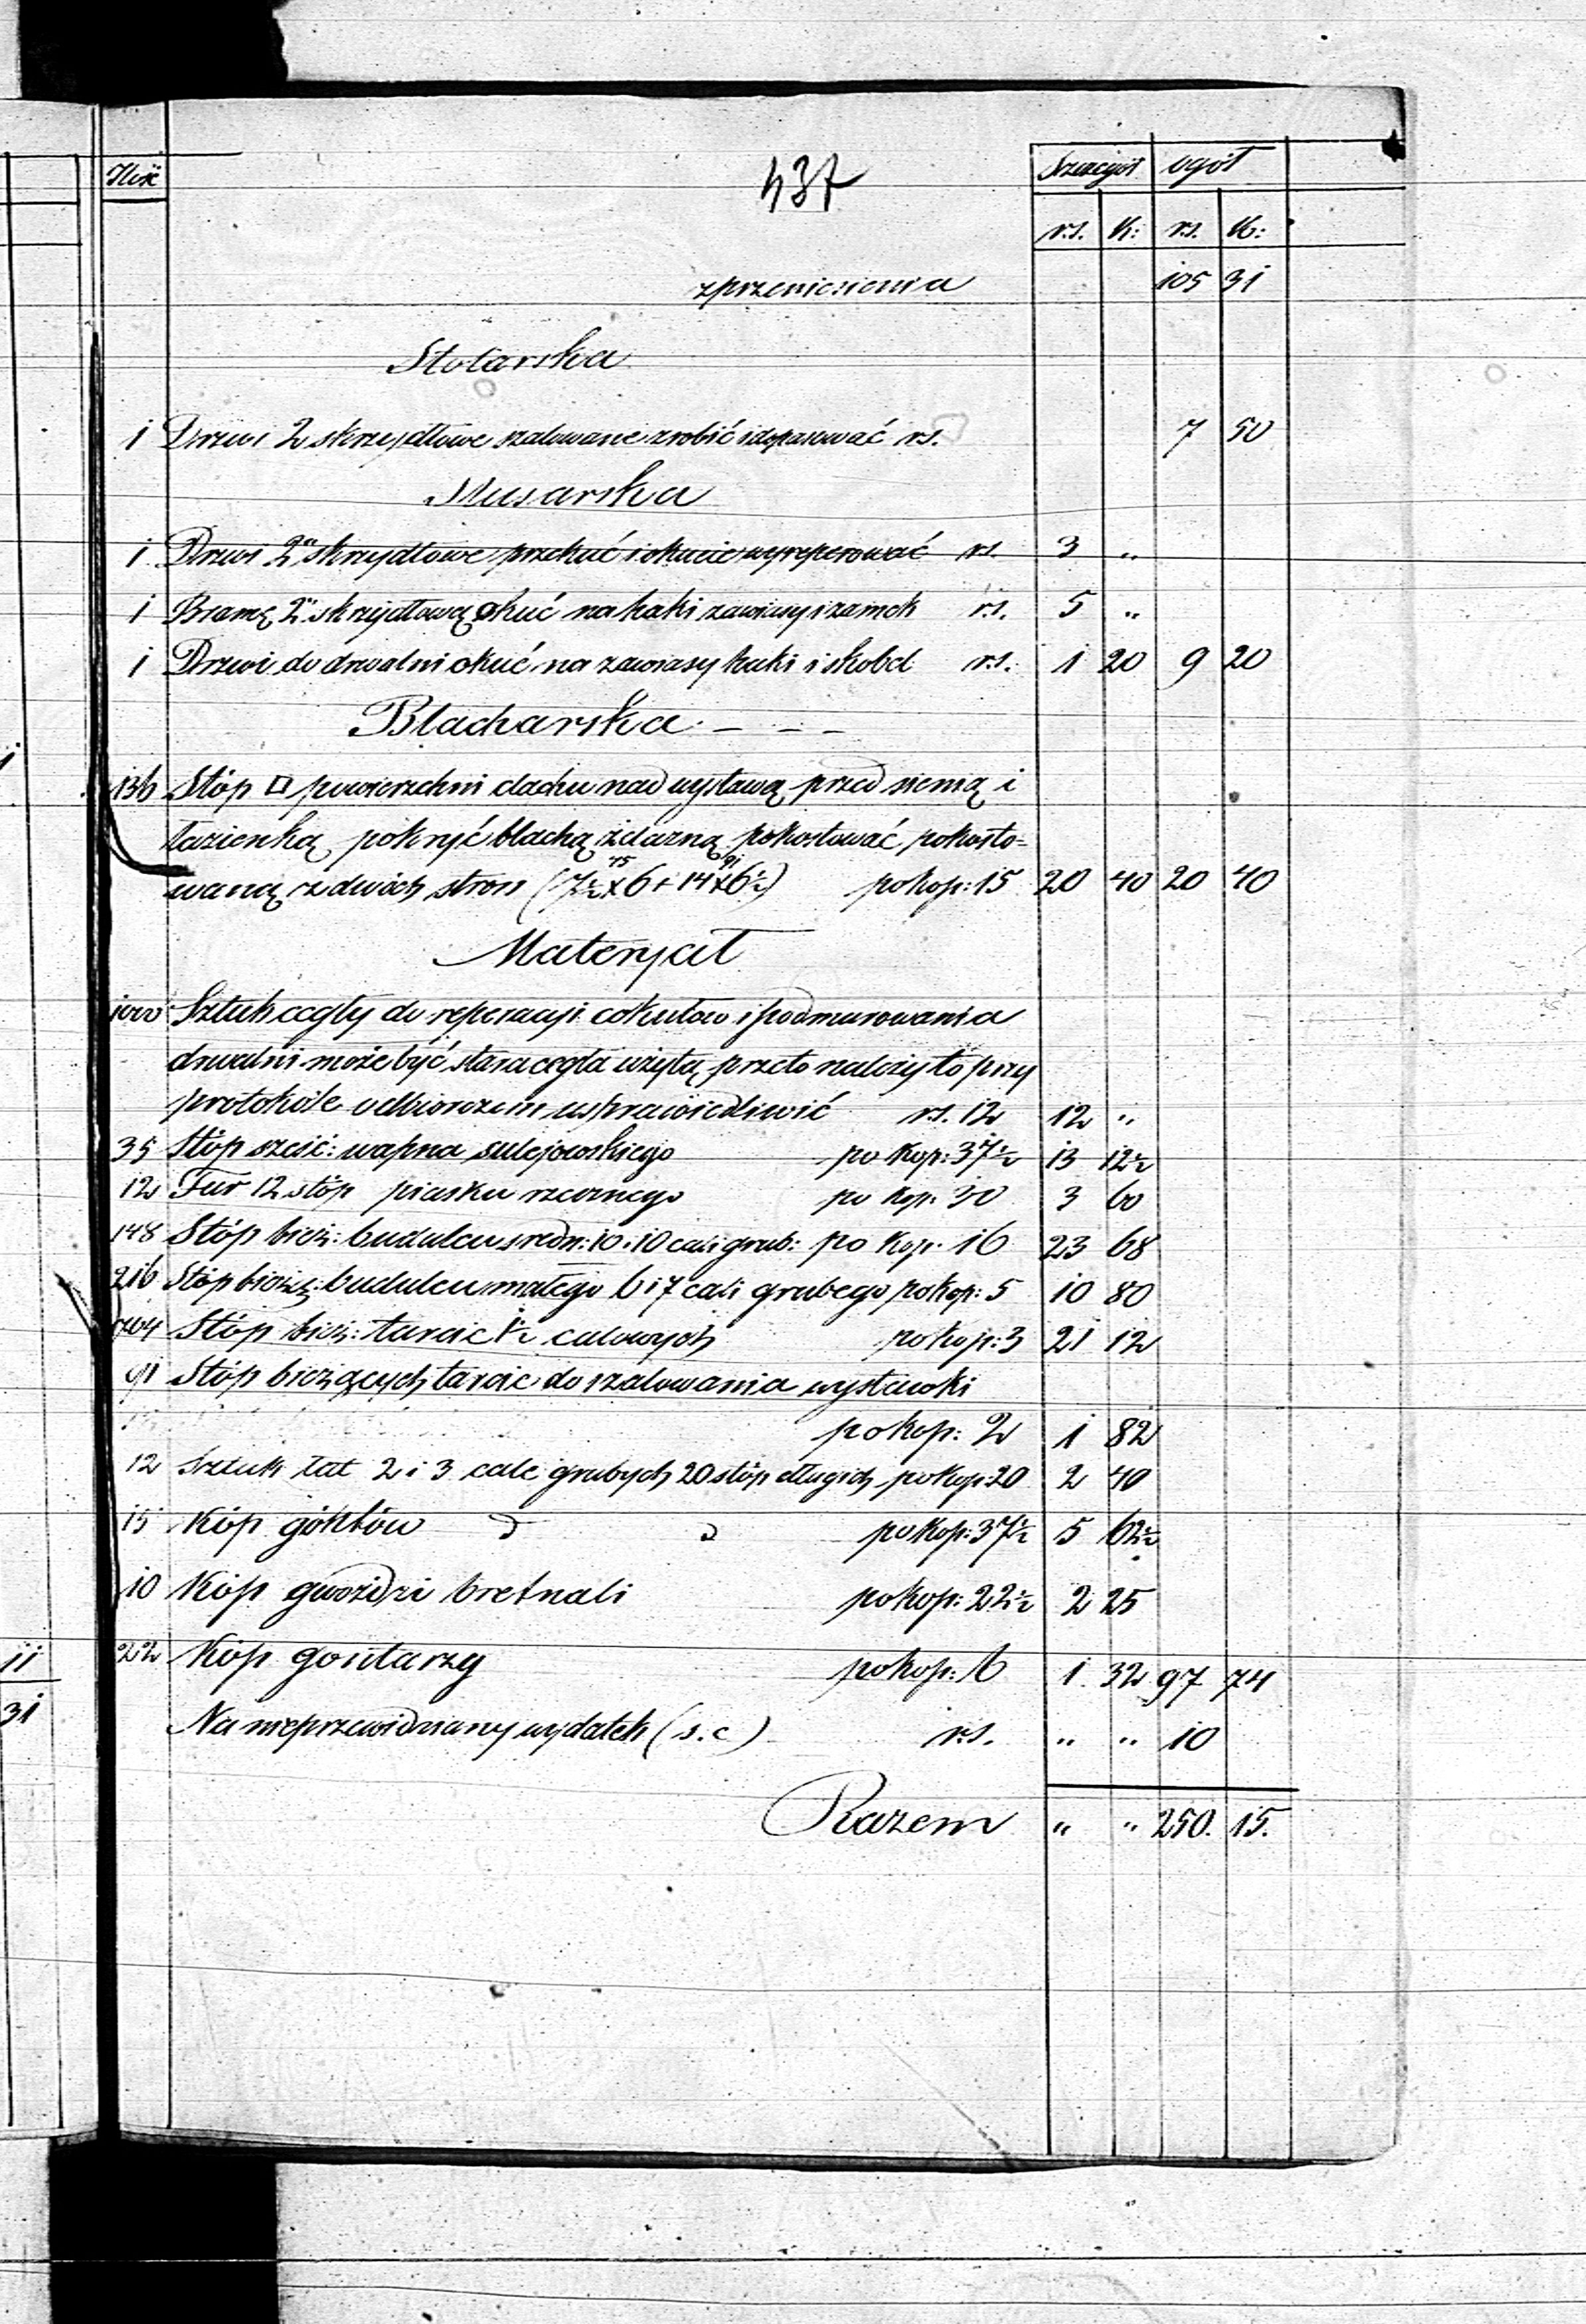 Ilość
437
Szczegół ogół
r.s. k: r.s. k:
z przeniesienia 105 31
Stolarska
1 Drzwi 2 skrzydłowe szalowane zrobić i dopasować r.s. 7 50
Slusarska
1 Drzwi 2" skrzydłowe przekuć i okucie wyreperować r.s. 3 "
1 Bramę 2" skrzydłową okuć na haki zawiasy i zamek r.s. 5 "
1 Drzwi do drwalni okuć na zawiasy haki i skobel r.s. 1 20 9 20
Blacharska - - -
136 Stóp □ powierzchni dachu nad wystawą przed sienią i
łazienką pokryć blachą żelazną pokostować pokosto=
waną z dwóch stron (7½ x 6 + 14 x 6½) po kop: 15 20 40 20 40
45 91
Materyał
1000 Sztuk cegły do reperacyi cokułów i podmurowania
drwalni może być stara cegła użytą, przeto należy to przy
protokóle odbiorczem usprawiedliwić r.s. 12 12 "
35 Stóp sześć: wapna sulejowskiego po kop: 37½ 13 12½
12 Fur 12 stóp piasku rzecznego po kop. 30 3 60
148 Stóp bież: budulcu sredn: 10 i 10 cali grub: po kop. 16 23 68
216 Stóp bieżą: budulcu małego 6 i 7 cali grubego po kop: 5 10 80
704 Stóp bież: tarcic 1½ calowych po kop: 3 21 12
91 Stóp bieżących tarcic do szalowania wystawki
po kop: 2 1 82
12 Sztuk łat 2 i 3 cale grubych 20 stóp długich po kop: 20 2 40
15 Kóp gontów po kop: 37½ 5 62½
10 Kóp gwozdzi bretnali po kop: 22½ 2 25
22 Kóp gontarzy po kop: 6 1 32 97 74
Na nieprzewidziany wydatek (s. c) r.s. " " 10
Razem " " 250. 15.
11
31